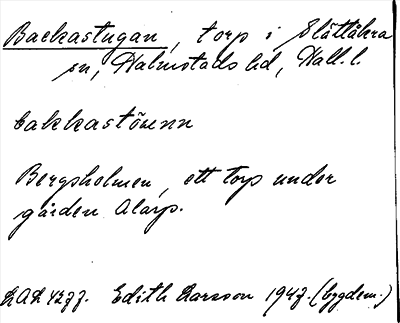 Backastugan, torp i Slättåkra
sn, Halmstads hd, Hall. l.
bakkastöunn
Bergsholmen, ett torp under
gården Alarp.
Edith Larsson 1947. (bygdem.)